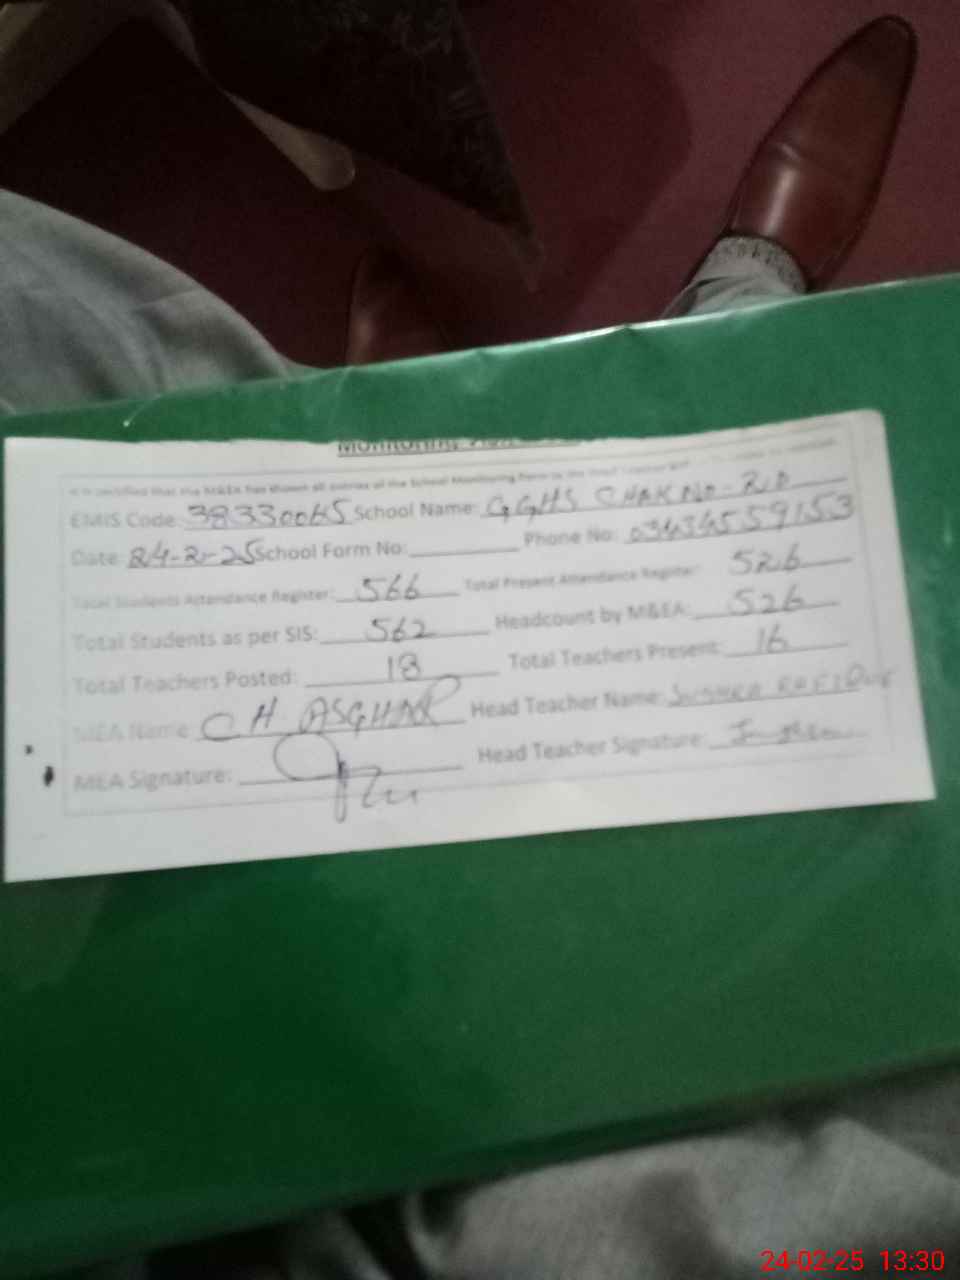 Monitoring
It is certified that the M&EA has shown all entries of the School Monitoring Form to the Head Teacher
EMIS Code: 38330065 School Name: GGHS CHAK NO-
Date: 24-2-25 School Form No: Phone No: 03434559153
Total Students Attendance Register: 566 Total Present Attendance Register: 526
Total Students as per SIS: 562 Headcount by M&EA: 526
Total Teachers Posted: 18 Total Teachers Present: 16
MEA Name: CH. ASGHAR Head Teacher Name:
MEA Signature: Head Teacher Signature:
24-02-25 13:30